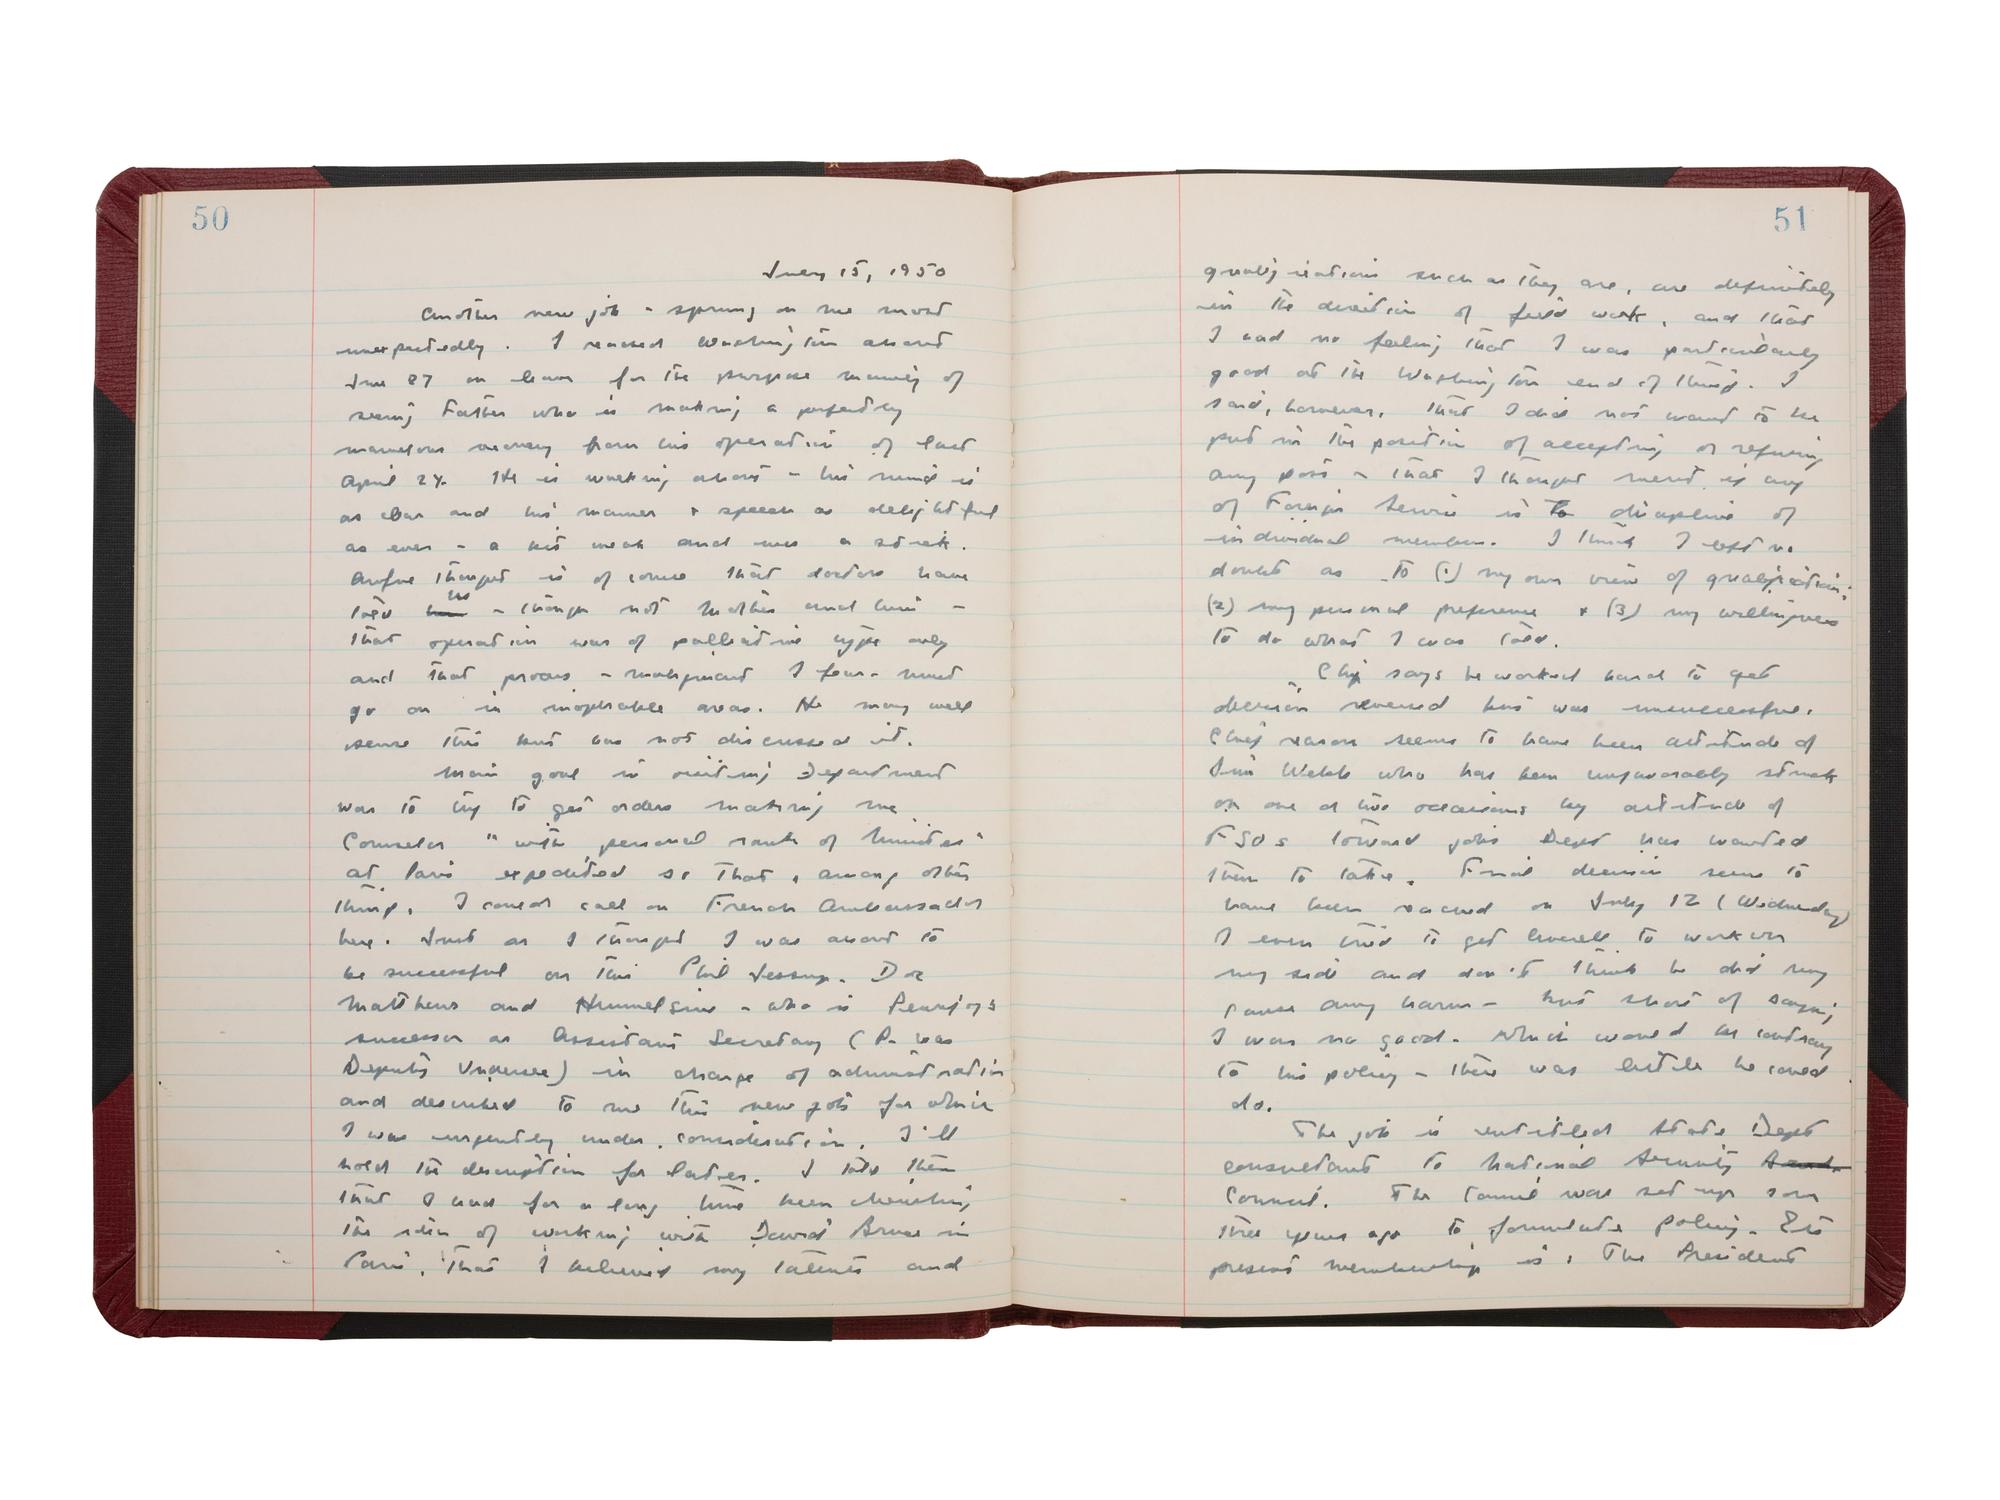 50
July 15, 1950
Another new job - sprung on me most
unexpectedly. I reached Washington about
June 27 on leave for the purpose mainly of
seeing Father who is making a perfectly
marvelous recovery from his operation of last
April 24. He is walking about - his mind is
as clear and his manner & speech as delightful
as ever - a bit weak and uses a stick.
Awful thought is of course that doctors have
told us - though not Mother and him -
that operation was of palliative type only
and that process - malignant I fear - must
go on in inoperable areas. He may well
sense this but has not discussed it.
Main goal in visiting Department
was to try to get orders making me
Counselor "with personal rank of Minister"
at Paris expedited so that, among other
things, I could call on French Ambassador
here. Just as I thought I was about to
be successful on this Phil Jessup, Doc
Matthews and Hummelsine - who is Peurifoy's
successor as Assistant Secretary (P. was
Deputy Undersec) in charge of administration
and described to me this new job for which
I was urgently under consideration. I'll
hold the description for later. I told them
that I had for a long time been cherishing
the idea of working with David Bruce in
Paris, that I believed my talents and
51
qualifications such as they are, are definitely
in the direction of field work, and that
I had no feeling that I was particularly
good at the Washington end of things. I
said, however, that I did not want to be
put in the position of accepting or refusing
any post - that I thought merit if any
of Foreign Service is to discipline of
individual members. I think I left no
doubt as to (1) my own view of qualifications;
(2) my personal preference & (3) my willingness
to do what I was told.
Chip says he worked hard to get
decision reversed but was unsuccessful.
Chief reason seems to have been attitude of
Jim Webb who has been unfavorably struck
on one or two occasions by attitude of
FSOs toward jobs Dept has wanted
them to take. Final decision seems to
have been reached on July 12 (Wednesday)
I even tried to get Averell to work on
my side and don't think he did my
cause any harm - but short of saying
I was no good - which would be contrary
to his policy - there was little he could
do.
The job is entitled State Dept
consultant to National Security
Council. The Council was set up some
three years ago to formulate policy. Its
present membership is: The President